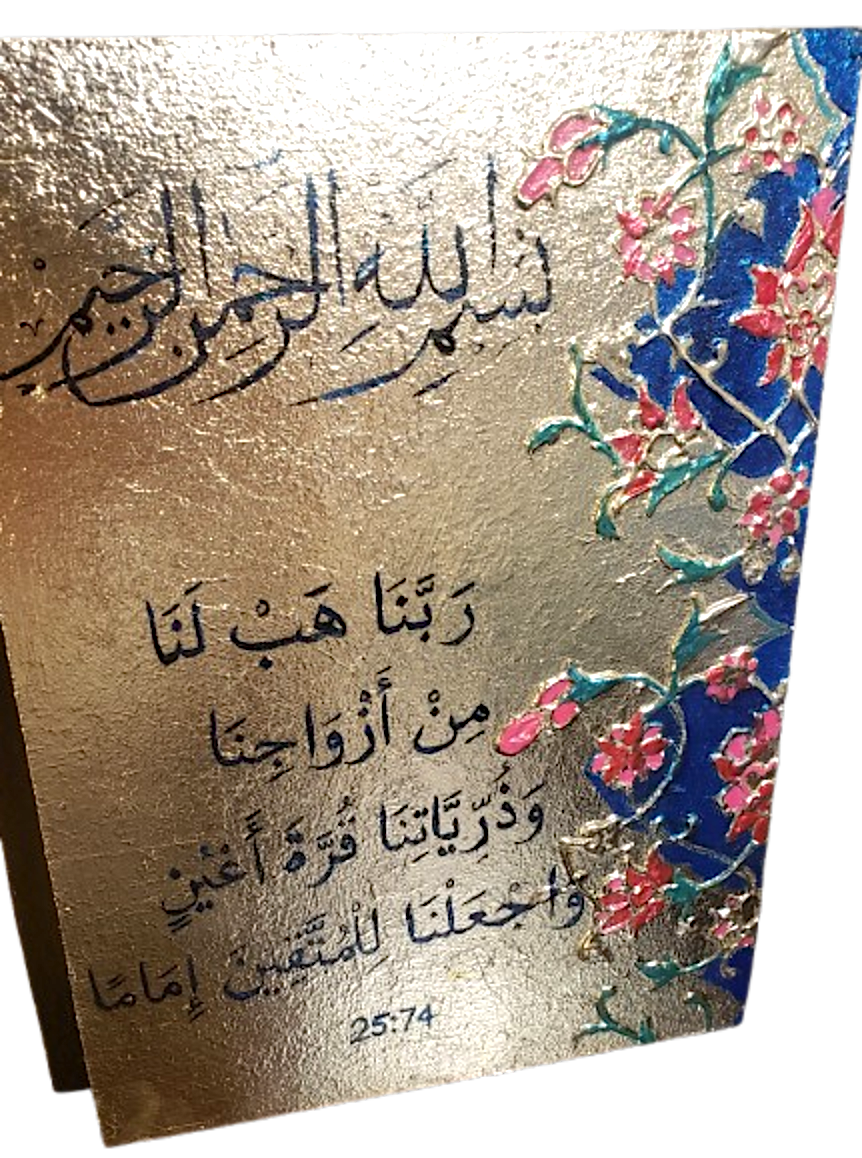 بِسْمِ اللَّهِ الرَّحْمَنِ الرَّحِيمِ
رَبَّنَا هَبْ لَنَا
مِنْ أَزْوَاجِنَا
وَذُرِّيَّاتِنَا قُرَّةَ أَعْيُنٍ
وَاجْعَلْنَا لِلْمُتَّقِينَ إِمَامًا
25:74